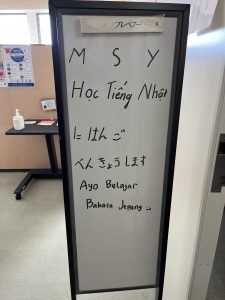 プレゼン
M S Y
Học Tiếng Nhật
にほんご
べんきょうします
Ayo Belajar
Bahasa Jepang